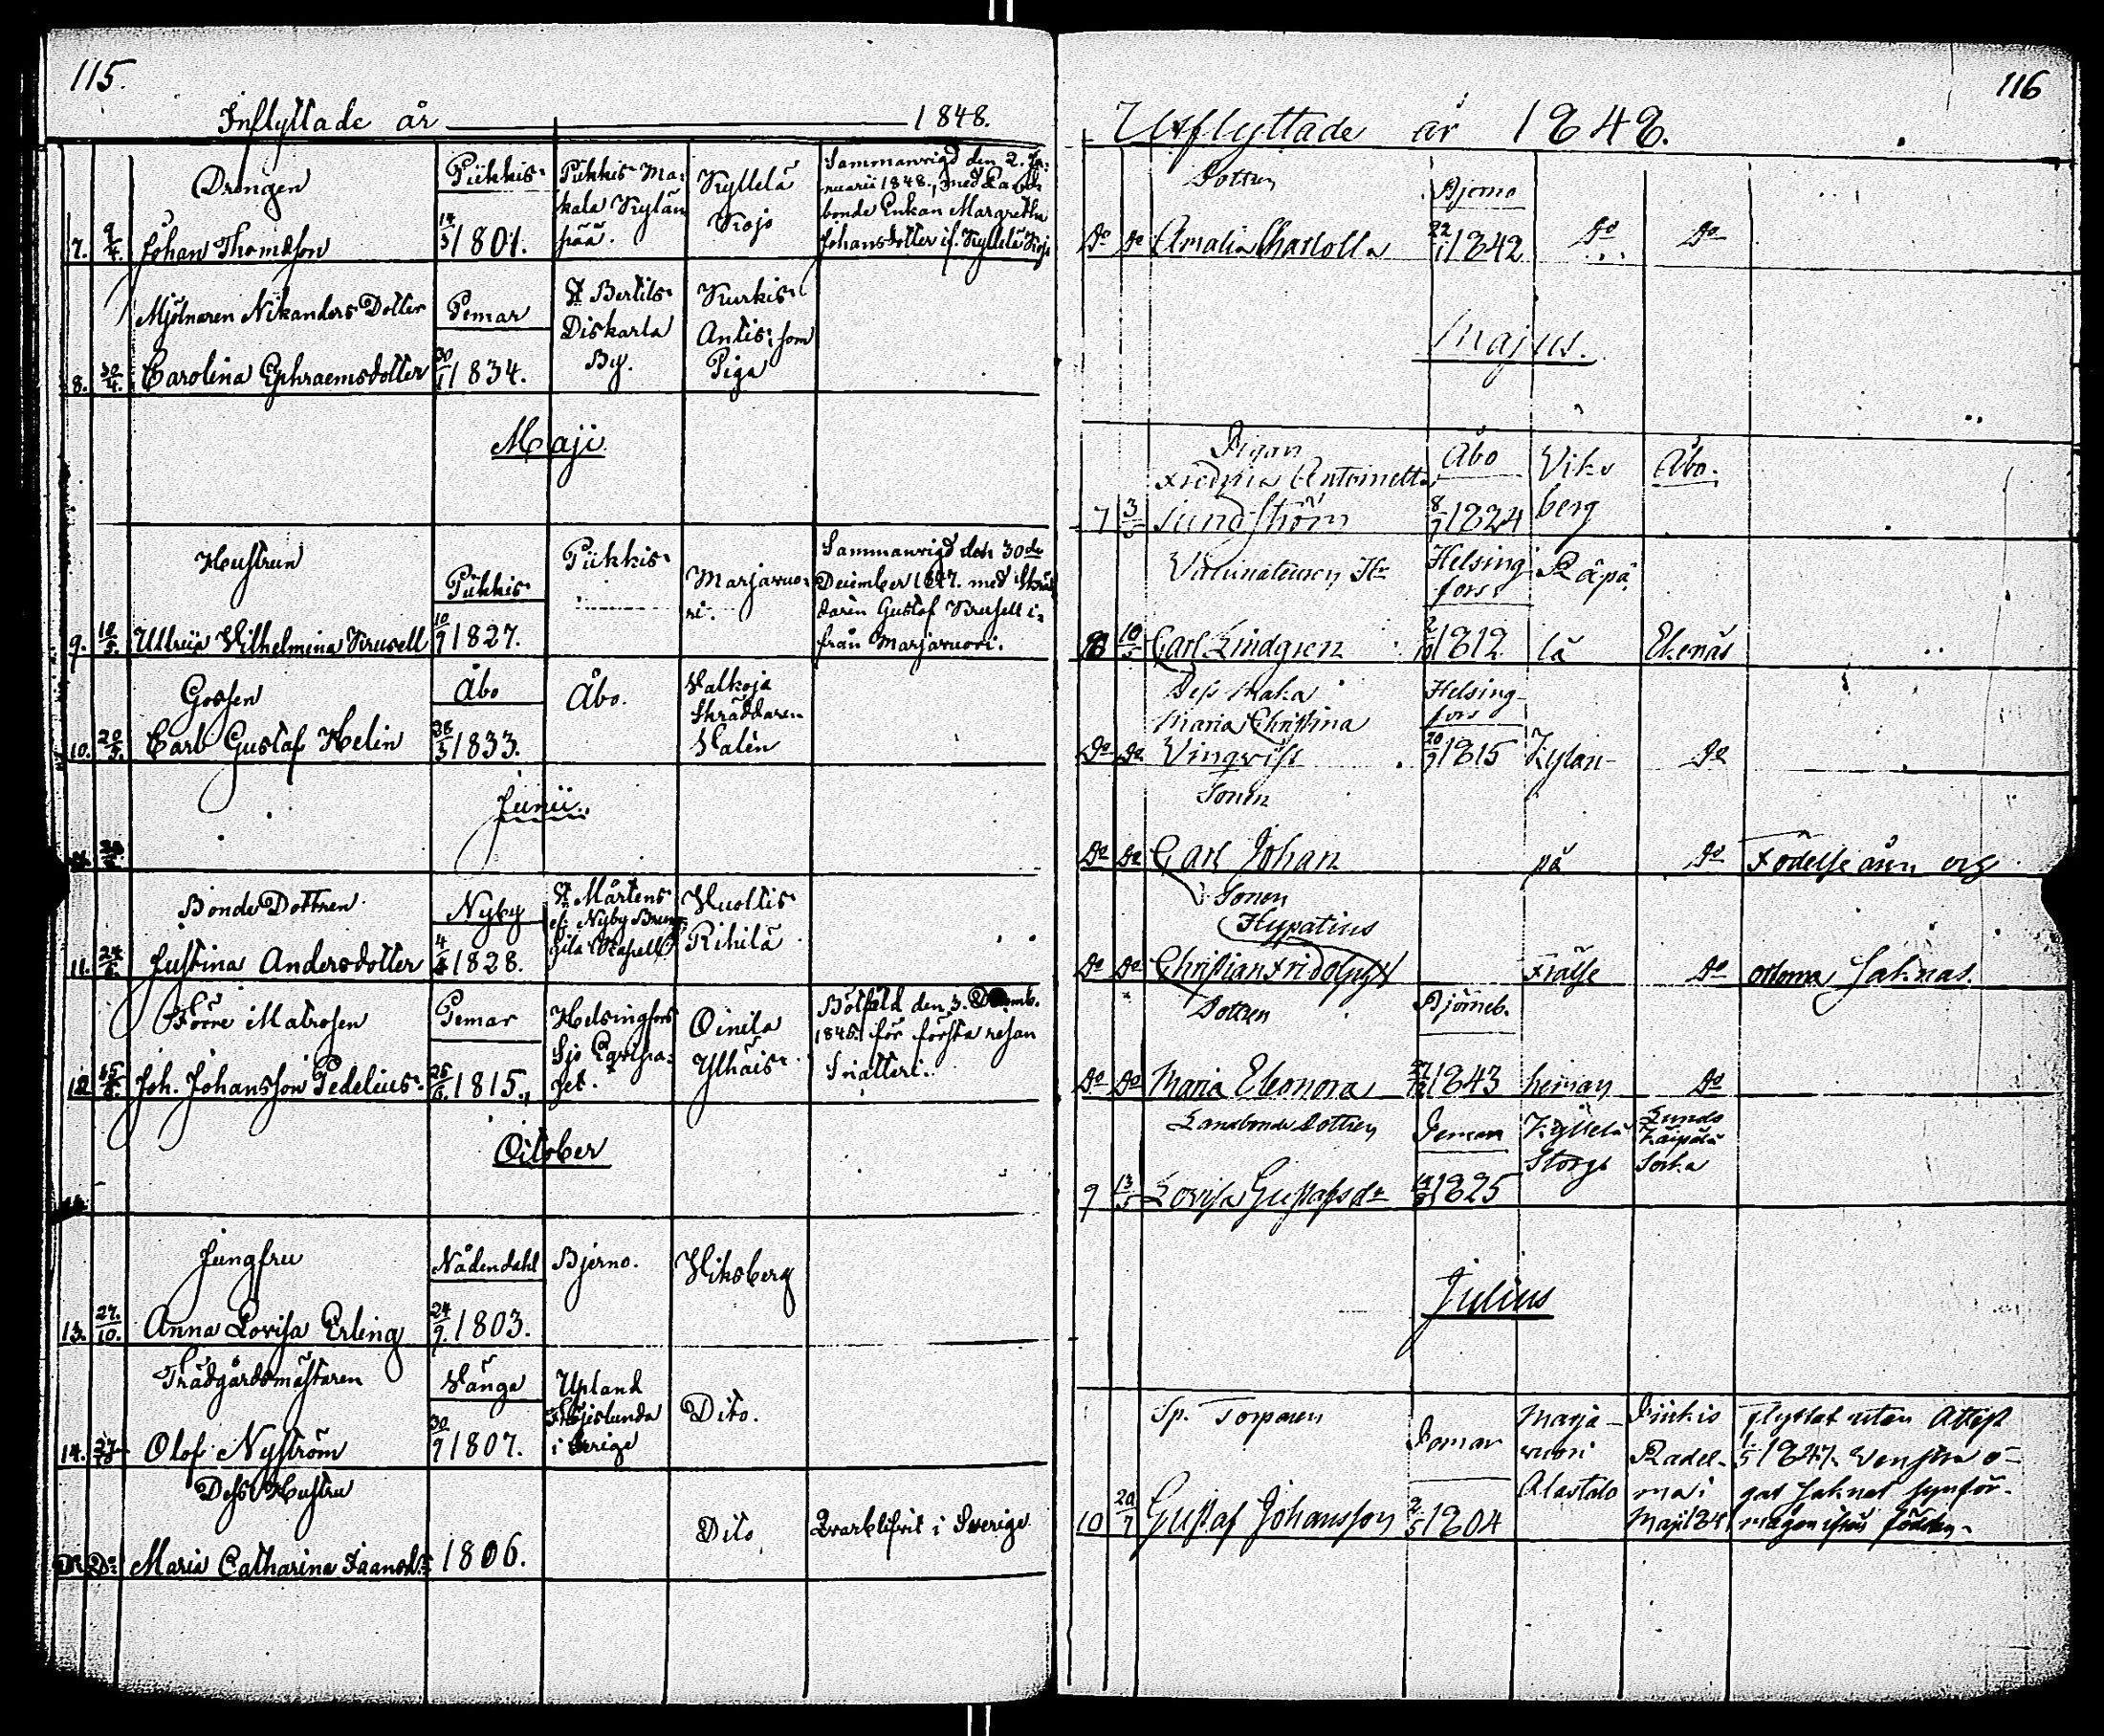 115.
Inflyttade år 1848.
Drengen
Piikkis
Piikkis Ma-
kala Kylän
pää.
Kyllelä
Kojo
Sammanvigd den 2. Ja-
nuarii 1848, med Landt-
bonde Enkan Margretha
Johansdotter if. Kyllelä Kojo
7. 9/4. Johan Thomasson 14/3 1801.
Mjölnaren Nikanders Dotter
Pemar
St Bertils
Diskarla
By.
Kurkis
Antis: som
Piga
8. 30/4. Carolina Ephraemsdotter 30/1 1834.
Maji
Hustrun
Piikkis
Piikkis
Marjavuo-
ri.
Sammanvigd den 30de
December 1847. med Skräd-
daren Gustaf Krusell i-
från Marjavuori.
9. 10/5. Ulrica Vilhelmina Krusell 10/9 1827.
Gossen
Åbo
Åbo.
Valkoja
Skräddaren
Valén
10. 20/5. Carl Gustaf Helin 28/3 1833.
Junii.
Bonde Dottren
Nyby
St Mårtens
ef. Nyby
Capell
Huottis
Rihilä
11. 24/6. Justina Andersdotter 4/4 1828.
Förre Matrosen
Pemar
Helsingfors
Sjö Equipa-
get.
Oinila
Ylhäis
den 3. Decemb.
1845. för första resan
Snatteri.
12. 15/8. Joh. Johansson Pedelius. 25/6. 1815.
October
Jungfru
Nådendahl
Bjerno.
Viksberg
13. 27/10. Anna Lovisa Erling 24/9. 1803.
Trädgårdsmästaren
Vånga
Upland
i Sverige
Dito.
14. Olof Nyström 30/9 1807.
Dess Hustru
Dito
Qvarblifvit i Sverige
Do Do Maria Catharina 1806.
116
Utflyttade år 1848.
Dottren
Bjerno
Do Do Amalia Charlotta 22/1 1842 Do Do
Majus.
Pigan
Åbo
Viks
berg
Åbo.
Antoinetta
7 3/5 Sundström 8/7 1824
Helsing-
fors
Räpä
8 10/5 Carl Lindgren 2/10 1812 lä Ekenäs
Dess Maka
Maria Christina
Helsing-
fors
Do Do Vinqvist 20/9 1815 Kylän- Do
Sonen
Do Do Carl Johan på Do Födelse åren och
Sonen
Hypatius
Do Do Christian Fridolph Frälse Do orterna saknas.
Dottren
Björneb.
Do Do Maria Eleonora 27/12 1843 heman Do
Landbonde Dottren
Pemar
Kyllelä
Storgs
Lundo
Käipälä
Sorka
9 13/5 Lovisa Gustafsdr 1825
Julius
Sp. Torparen
Pemar
Marja-
vuori
Alastalo
Piikis
Radel-
ma i
Maji 184
Flyttat utan Attest
1/5 1847. Venstra ö-
gat saknat synför-
mågan ifrån födseln.
10 20/7 Gustaf Johansson 2/5 1804